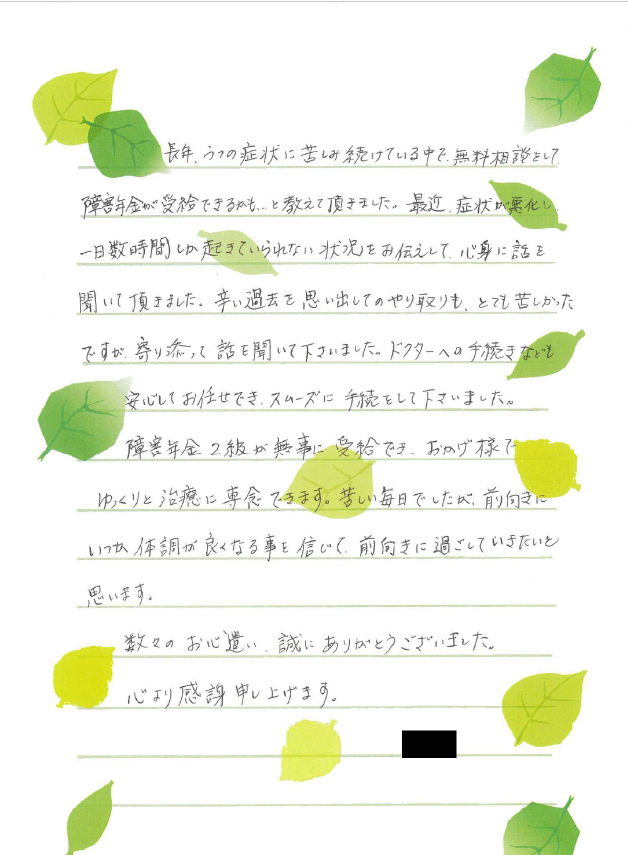 長年、うつの症状に苦しみ続けている中で、無料相談をして
障害年金が受給できるかも…と教えて頂きました。最近、症状が悪化し
一日数時間しか起きていられない状況をお伝えして、心身に話を
聞いて頂きました。辛い過去を思い出してのやり取りも、とても苦しかった
ですが、寄り添って話を聞いて下さいました。ドクターへの手続きなども
安心してお任せでき、スムーズに手続をして下さいました。
障害年金2級が無事に受給でき、おかげ様で
ゆっくりと治療に専念できます。苦しい毎日でしたが、前向きに
いつか体調が良くなる事を信じて、前向きに過ごしていきたいと
思います。
数々のお心遣い、誠にありがとうございました。
心より感謝申し上げます。